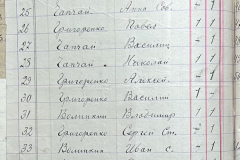 25 Гапчай Анна Сов. - 1
26 Григоренко Павел 1 1
27 Гапчай Василий - 1
28 Гапчай Николай - 1
29 Григоренко Алексей 1 1
30 Григоренко Василий 1 1
31 Владимир 1 1
32 Григоренко Сергей Ст. - 1
33 Иван с. - 1